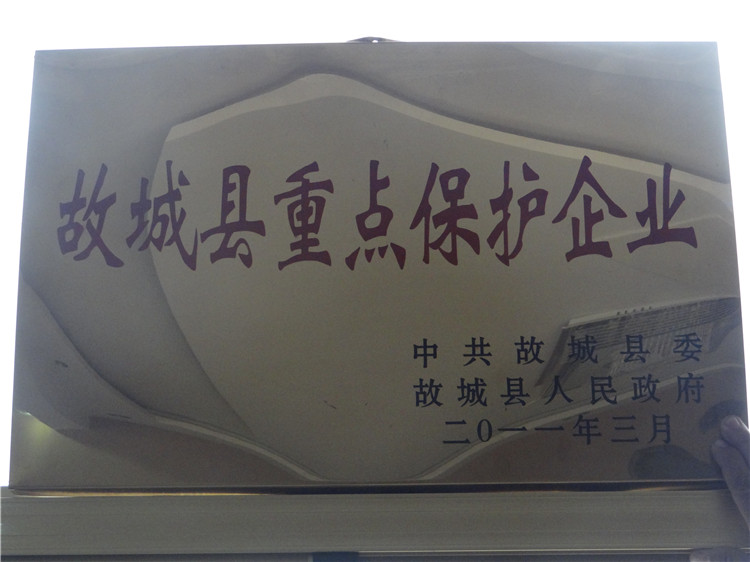 故城县重点保护企业
中共故城县委
故城县人民政府
二０一一年三月